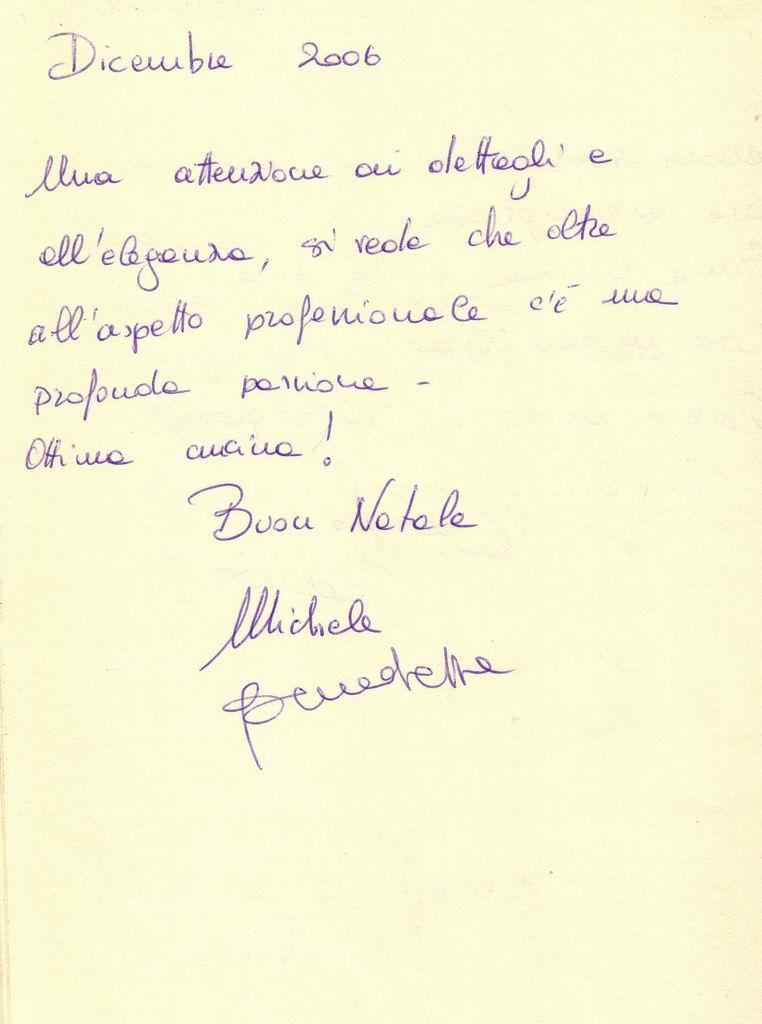 Dicembre 2006
Una attenzione ai dettagli e
all'eleganza, si vede che oltre
all'aspetto professionale c'è una
profonda passione -
Ottima cucina!
Buon Natale
Michele
Benedetta